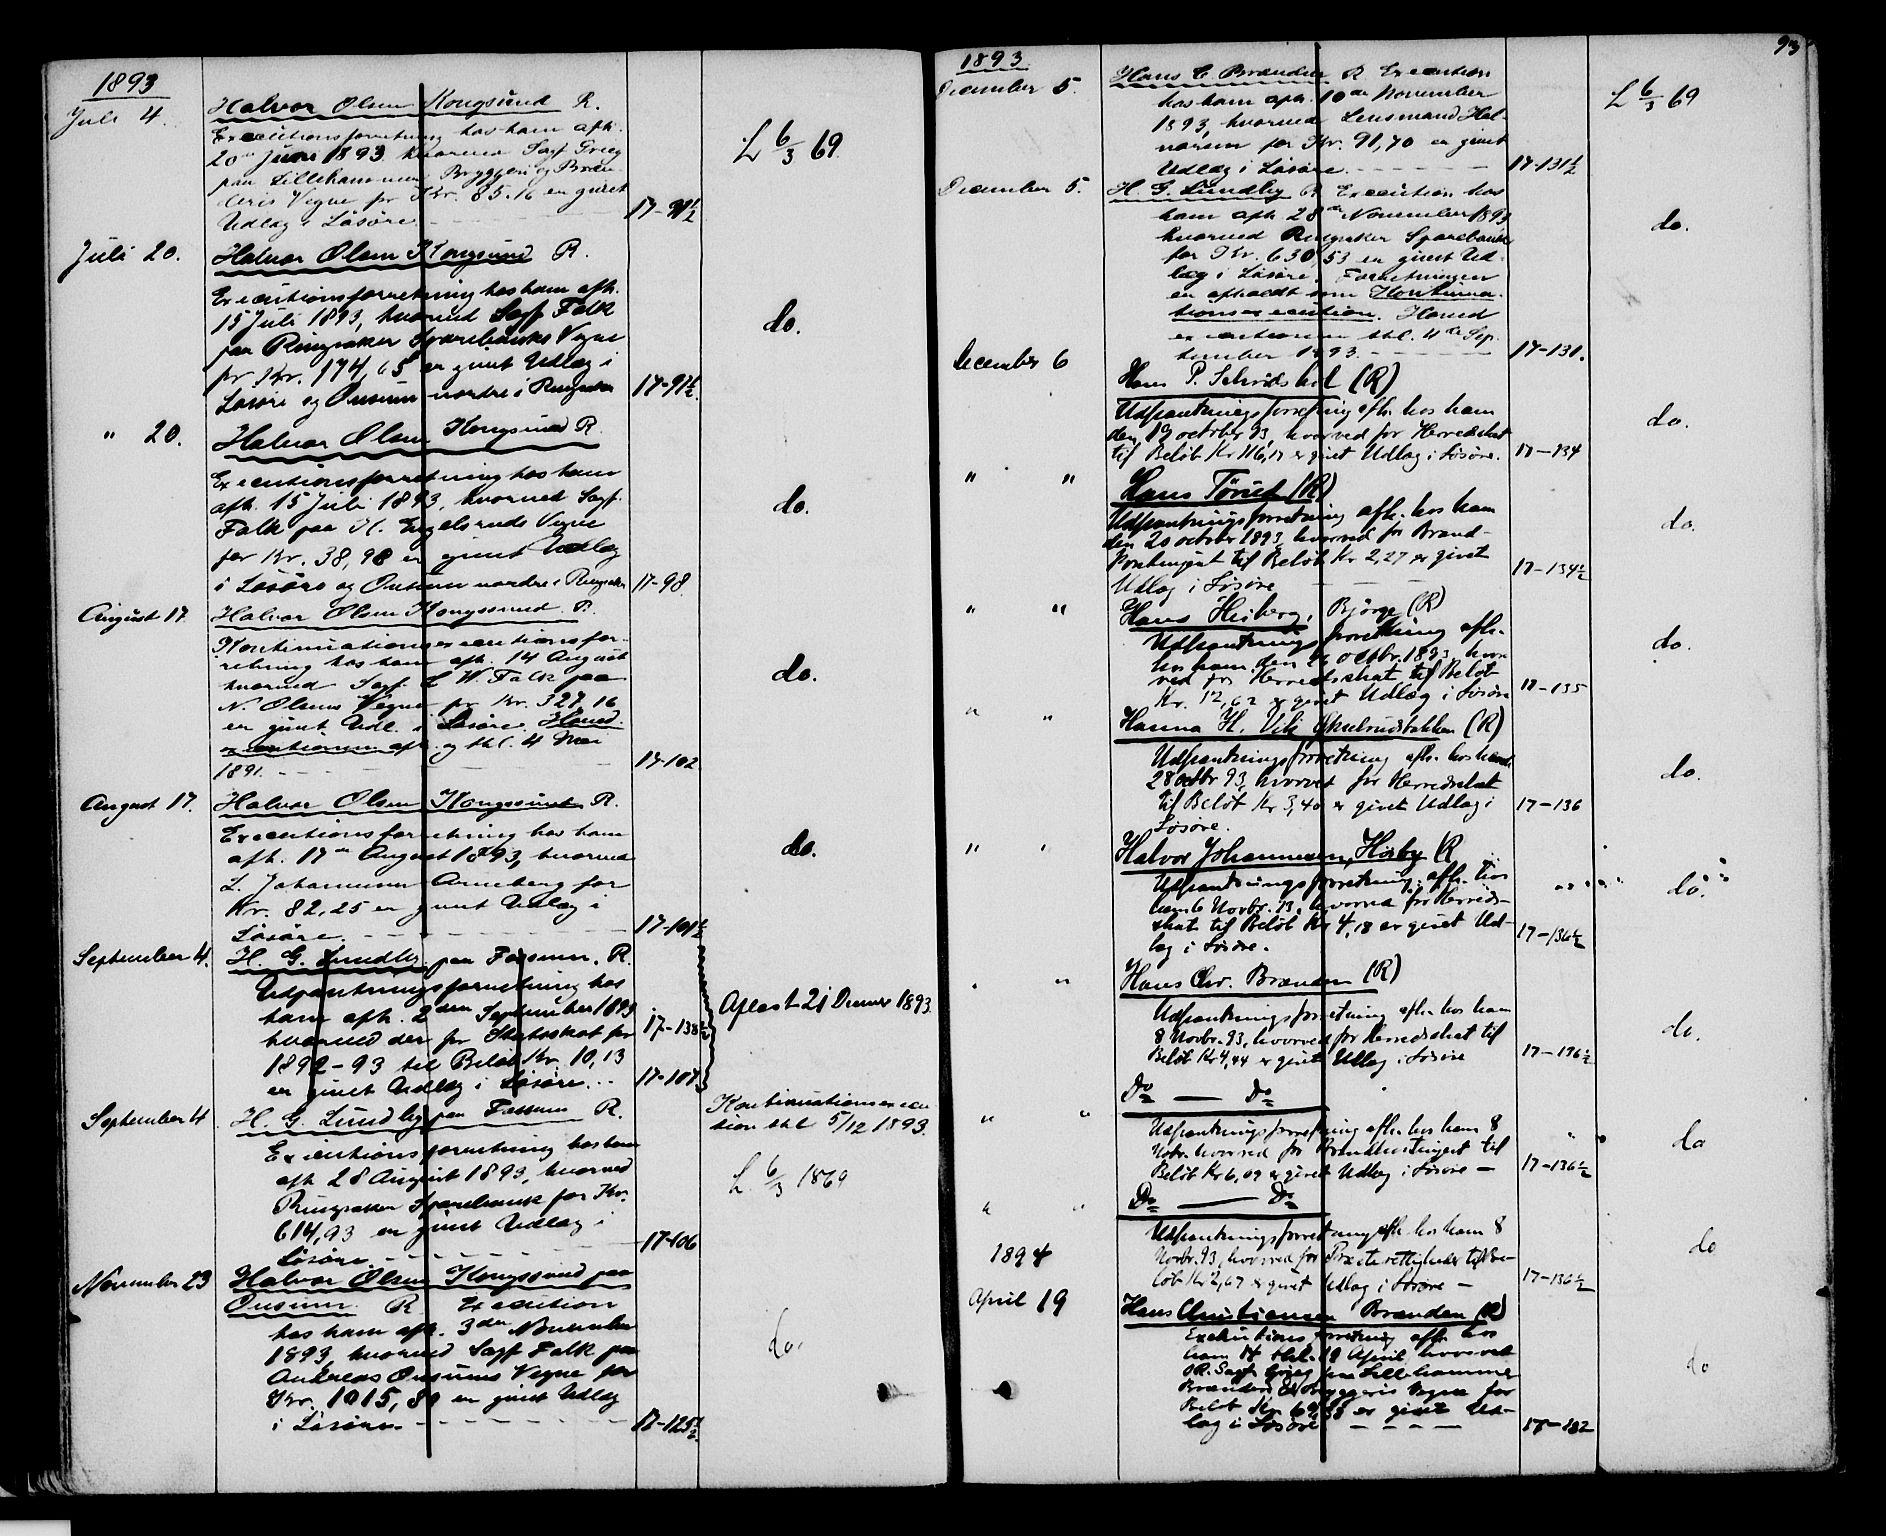 1893
Juli 4.
Halvor Olsen Kongsund R.
Executionsforretning hos ham afh.
20de Juni 1893 hvorved Sagf Grieg
paa Lillehammer Bryggeri og Bræn-
deris Vegne for Kr. 85.16 er givet
Udlæg i Løsøre.
17-91½
L 6/3 69.
Juli 20.
Halvor Olsen Kongsund R.
Executionsforretning hos ham afh.
15 Juli 1893, hvorved Sagf Falk
paa Ringsaker Sparebanks Vegne
for Kr. 174,65 er givet Udlæg i
Løsøre og Onsum nordre i Ringsaker
17-97½
do.
" 20.
Halvor Olsen Kongsund R.
Executionsforretning hos ham
afh. 15 Juli 1893, hvorved Sagf.
Falk paa H. Engelsruds Vegne
for Kr. 38,98 er givet Udlæg
i Løsøre og Onsum nordre i Ringsaker
17-98
do.
August 17
Halvor Olsen Kongssund R.
Kontinuationsexecutionsfor-
retning hos ham afh. 14 August
hvorved Sagf. L W. Falk paa
N. Olsens Vegne for Kr. 327,16
er givet Udl. i Løsøre. Hoved-
executionen afh. og thl. 4 Mai
1891.
17-102
do.
August 17.
Halvor Olsen Kongssund R.
Executionsforretning hos ham
afh. 17de August 1893, hvorved
L. Johannesen Arneberg for
Kr. 82,25 er givet Udlæg i
Løsøre.
17-101½
do.
September 4.
H. G. Lundby paa Fossum. R.
Udpantningsforretning hos
ham afh. 2den September 1893
hvorved der for Skatoskat for
1892-93 til Beløb Kr. 10,13
er givet Udlæg i Løsøre.
17-138½
17-107
Aflæst 21 Decemr 1893.
September 4
H. G. Lundby paa Fossum R.
Executionsforretning hos ham
afh 28 August 1893, hvorved
Ringsaker Sparebank for Kr.
614,93 er givet Udlæg i
Løsøre
17-106
Kontinuationsexecu
tion thl 5/12 1893.
L. 6/3 1869
November 23
Halvor Olsen Kongssund paa
Onsum. R Execution
hos ham afh. 3die November
1893 hvorved Sagf Falk paa
Andreas Onsums Vegne for
Kr. 1015,80 er givet Udlæg
i Løsøre
17-125½
do.
93
1893
December 5.
Hans C Brænden R Execution
hos ham afh. 10de November
1893, hvorved Lensmand Hal-
vorsen for Kr. 91,70 er givet
Udlæg i Løsøre.
17-131½
L 6/3 69
December 5.
H. G. Lundby R Execution hos
ham afh 28de November 1893
hvorved Ringsaker Sparebank
for Kr. 630,53 er givet Ud-
læg i Løsøre. Forretningen
er afholdt som Kontinua-
tionsexecution. Hoved
executionen thl. 4de Sep
tember 1893.
17-131.
do.
December 6
Hans P. Schridshol (R)
Udpantningsforretning afh. hos ham
den 19 october 93, hvorved for Herredskat
til Beløb Kr 116,17 er givet Udlæg i Løsøre.
17-134
do.
" "
Hans Tørud (R)
Udpantningsforretning afh. hos ham
den 20 october 1893, hvorved for Brand-
kontingent til Beløb Kr 2,27 er givet
Udlæg i Løsøre
17-134½
do.
" "
Hans Heiberg, Bjørge (R)
Udpantningsforretning afh.
hos ham den 26 octbr. 1893, hvor
ved for Herredsskat til Beløb
Kr. 12,62 er givet Udlæg i Løsøre
17-135
do.
" "
Hanna H. Vik (R)
Udpantningsforretning afh. hos hende
28 octbr 93, hvorved for Herredsskat
til Beløb Kr 3,40 er givet Udlæg i
Løsøre.
17-136
do.
" "
Halvor Johannesen, Hørby R
Udpantningsforretning afh. hos
ham 6 Novbr. 93, hvorved for Herreds-
skat til Beløb Kr 4,18 er givet Ud-
læg i Løsøre.
17-136½
do.
" "
Hans Chr. Brænden (R)
Udpantningsforretning afh. hos ham
8 Novbr. 93, hvorved for Herredsskat til
Beløb Kr 4,44 er givet Udlæg i Løsøre
17-136½
do.
" "
Do — Do
Udpantningsforretning afh. hos ham 8
Novbr. hvorved for Brandkontingent til
Beløb Kr 6,09 er givet Udlæg i Løsøre —
17-136½
do
" "
Do — Do
Udpantningsforretning afh. hos ham 8
Novbr. 93, hvorved for Præsterettigheder til Be-
løb Kr 2,67 er givet Udlæg i Løsøre —
17-136½
do
1894
April 19
Hans Christiansen Brænden (R)
Exekutionsforretning afh. hos
ham 17 thl. 19 April, hvorved
OR. Sagf. Grieg paa Lillehammer
Brænderi & Bryggeris Vegne for
Beløb Kr. 69,38 er givet Ud-
læg i Løsøre
17-182
do